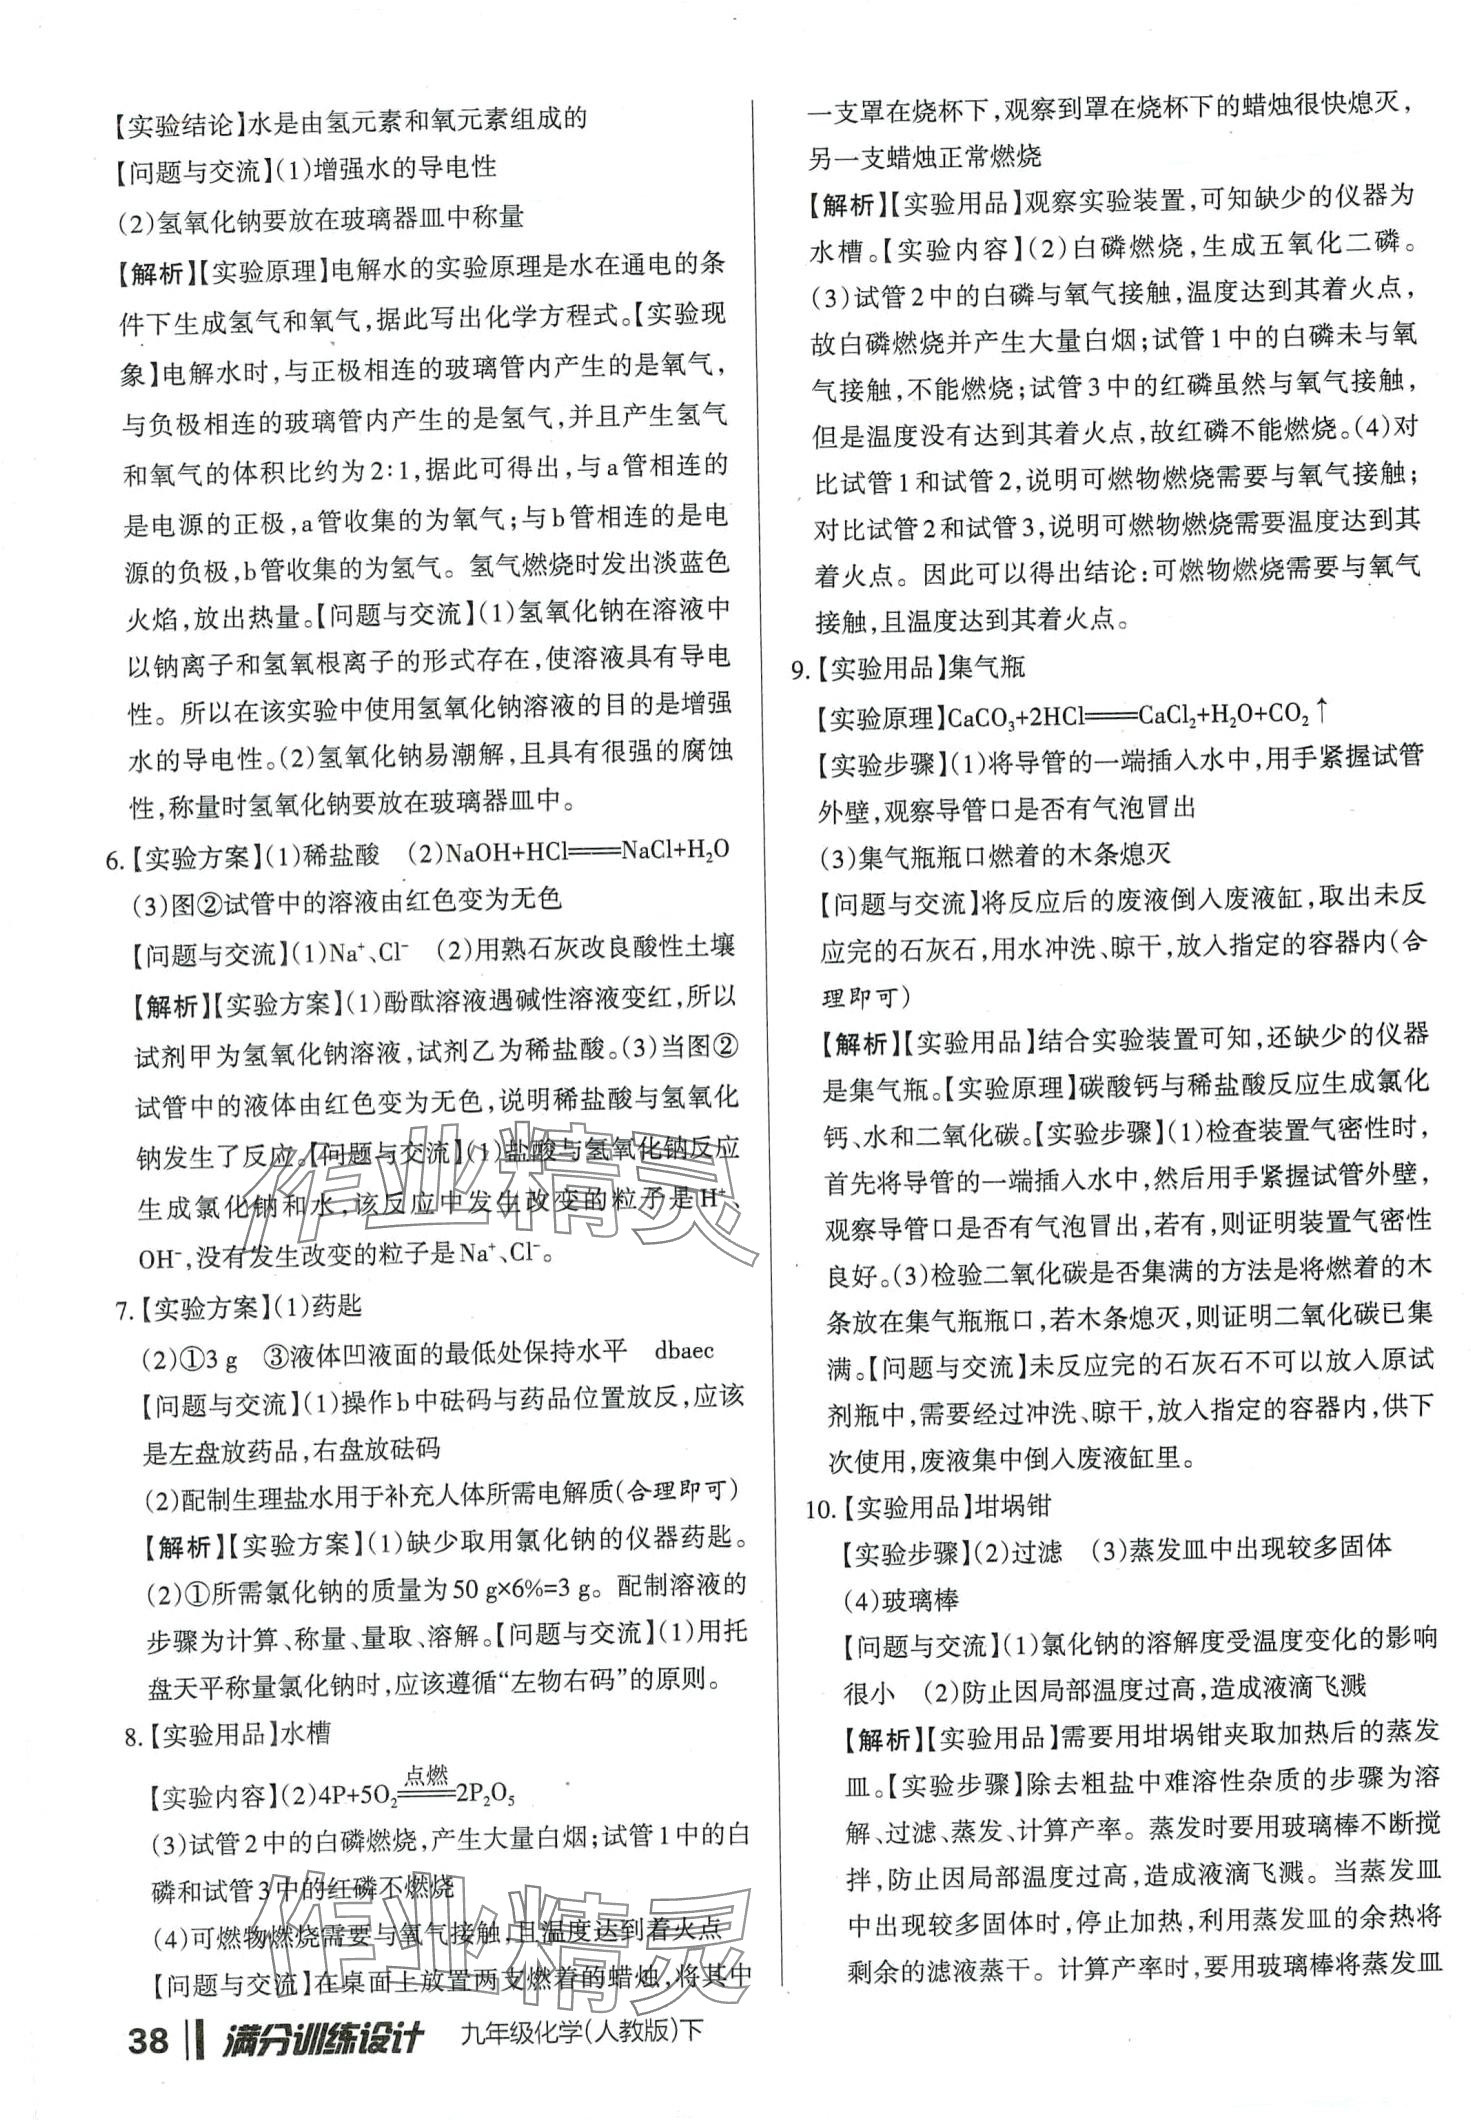 【实验结论】水是由氢元素和氧元素组成的
【问题与交流】(1)增强水的导电性
(2)氢氧化钠要放在玻璃器皿中称量
【解析】【实验原理】电解水的实验原理是水在通电的条
件下生成氢气和氧气,据此写出化学方程式。【实验现
象】电解水时,与正极相连的玻璃管内产生的是氧气,
与负极相连的玻璃管内产生的是氢气,并且产生氢气
和氧气的体积比约为2:1,据此可得出,与a管相连的
是电源的正极,a管收集的为氧气;与b管相连的是电
源的负极,b管收集的为氢气。氢气燃烧时发出淡蓝色
火焰,放出热量。【问题与交流】(1)氢氧化钠在溶液中
以钠离子和氢氧根离子的形式存在,使溶液具有导电
性。所以在该实验中使用氢氧化钠溶液的目的是增强
水的导电性。(2)氢氧化钠易潮解,且具有很强的腐蚀
性,称量时氢氧化钠要放在玻璃器皿中。
6.【实验方案】(1)稀盐酸 (2)NaOH+HCl══NaCl+H₂O
(3)图②试管中的溶液由红色变为无色
【问题与交流】(1)Na⁺、Cl⁻ (2)用熟石灰改良酸性土壤
【解析】【实验方案】(1)酚酞溶液遇碱性溶液变红,所以
试剂甲为氢氧化钠溶液,试剂乙为稀盐酸。(3)当图②
试管中的液体由红色变为无色,说明稀盐酸与氢氧化
钠发生了反应。【问题与交流】(1)盐酸与氢氧化钠反应
生成氯化钠和水,该反应中发生改变的粒子是H⁺、
OH⁻,没有发生改变的粒子是Na⁺、Cl⁻。
7.【实验方案】(1)药匙
(2)①3 g ③液体凹液面的最低处保持水平 dbaec
【问题与交流】(1)操作b中砝码与药品位置放反,应该
是左盘放药品,右盘放砝码
(2)配制生理盐水用于补充人体所需电解质(合理即可)
【解析】【实验方案】(1)缺少取用氯化钠的仪器药匙。
(2)①所需氯化钠的质量为50 g×6%=3 g。配制溶液的
步骤为计算、称量、量取、溶解。【问题与交流】(1)用托
盘天平称量氯化钠时,应该遵循“左物右码”的原则。
8.【实验用品】水槽
【实验内容】(2)4P+5O₂══点燃══2P₂O₅
(3)试管2中的白磷燃烧,产生大量白烟;试管1中的白
磷和试管3中的红磷不燃烧
(4)可燃物燃烧需要与氧气接触,且温度达到着火点
【问题与交流】在桌面上放置两支燃着的蜡烛,将其中
38 满分训练设计 九年级化学(人教版)下
一支罩在烧杯下,观察到罩在烧杯下的蜡烛很快熄灭,
另一支蜡烛正常燃烧
【解析】【实验用品】观察实验装置,可知缺少的仪器为
水槽。【实验内容】(2)白磷燃烧,生成五氧化二磷。
(3)试管2中的白磷与氧气接触,温度达到其着火点,
故白磷燃烧并产生大量白烟;试管1中的白磷未与氧
气接触,不能燃烧;试管3中的红磷虽然与氧气接触,
但是温度没有达到其着火点,故红磷不能燃烧。(4)对
比试管1和试管2,说明可燃物燃烧需要与氧气接触;
对比试管2和试管3,说明可燃物燃烧需要温度达到其
着火点。因此可以得出结论:可燃物燃烧需要与氧气
接触,且温度达到其着火点。
9.【实验用品】集气瓶
【实验原理】CaCO₃+2HCl══CaCl₂+H₂O+CO₂↑
【实验步骤】(1)将导管的一端插入水中,用手紧握试管
外壁,观察导管口是否有气泡冒出
(3)集气瓶瓶口燃着的木条熄灭
【问题与交流】将反应后的废液倒入废液缸,取出未反
应完的石灰石,用水冲洗、晾干,放入指定的容器内(合
理即可)
【解析】【实验用品】结合实验装置可知,还缺少的仪器
是集气瓶。【实验原理】碳酸钙与稀盐酸反应生成氯化
钙、水和二氧化碳。【实验步骤】(1)检查装置气密性时,
首先将导管的一端插入水中,然后用手紧握试管外壁,
观察导管口是否有气泡冒出,若有,则证明装置气密性
良好。(3)检验二氧化碳是否集满的方法是将燃着的木
条放在集气瓶瓶口,若木条熄灭,则证明二氧化碳已集
满。【问题与交流】未反应完的石灰石不可以放入原试
剂瓶中,需要经过冲洗、晾干,放入指定的容器内,供下
次使用,废液集中倒入废液缸里。
10.【实验用品】坩埚钳
【实验步骤】(2)过滤 (3)蒸发皿中出现较多固体
(4)玻璃棒
【问题与交流】(1)氯化钠的溶解度受温度变化的影响
很小 (2)防止因局部温度过高,造成液滴飞溅
【解析】【实验用品】需要用坩埚钳夹取加热后的蒸发
皿。【实验步骤】除去粗盐中难溶性杂质的步骤为溶
解、过滤、蒸发、计算产率。蒸发时要用玻璃棒不断搅
拌,防止因局部温度过高,造成液滴飞溅。当蒸发皿
中出现较多固体时,停止加热,利用蒸发皿的余热将
剩余的滤液蒸干。计算产率时,要用玻璃棒将蒸发皿
作业精灵
作业精灵